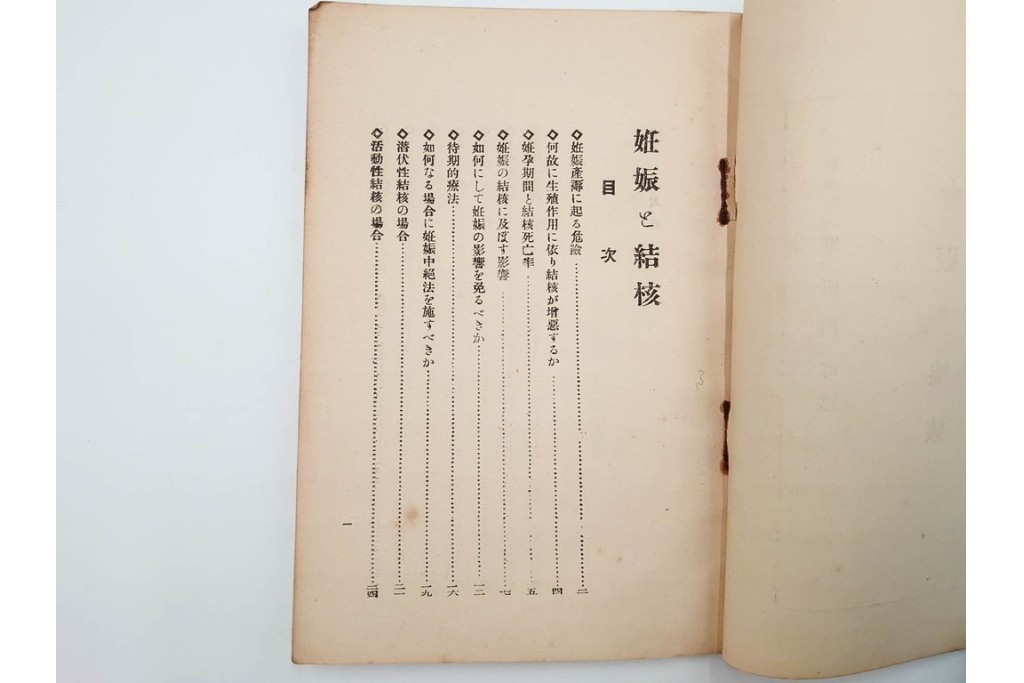 妊娠と結核
目次
◇妊娠產褥に起る危險……二
◇何故に生殖作用に依り結核が增惡するか……四
◇妊孕期間と結核死亡率……五
◇妊娠の結核に及ぼす影響……七
◇如何にして妊娠の影響を免るべきか……一二
◇待期的療法……一六
◇如何なる場合に妊娠中絕法を施すべきか……一九
◇潜伏性結核の場合……二一
◇活動性結核の場合……二四
一